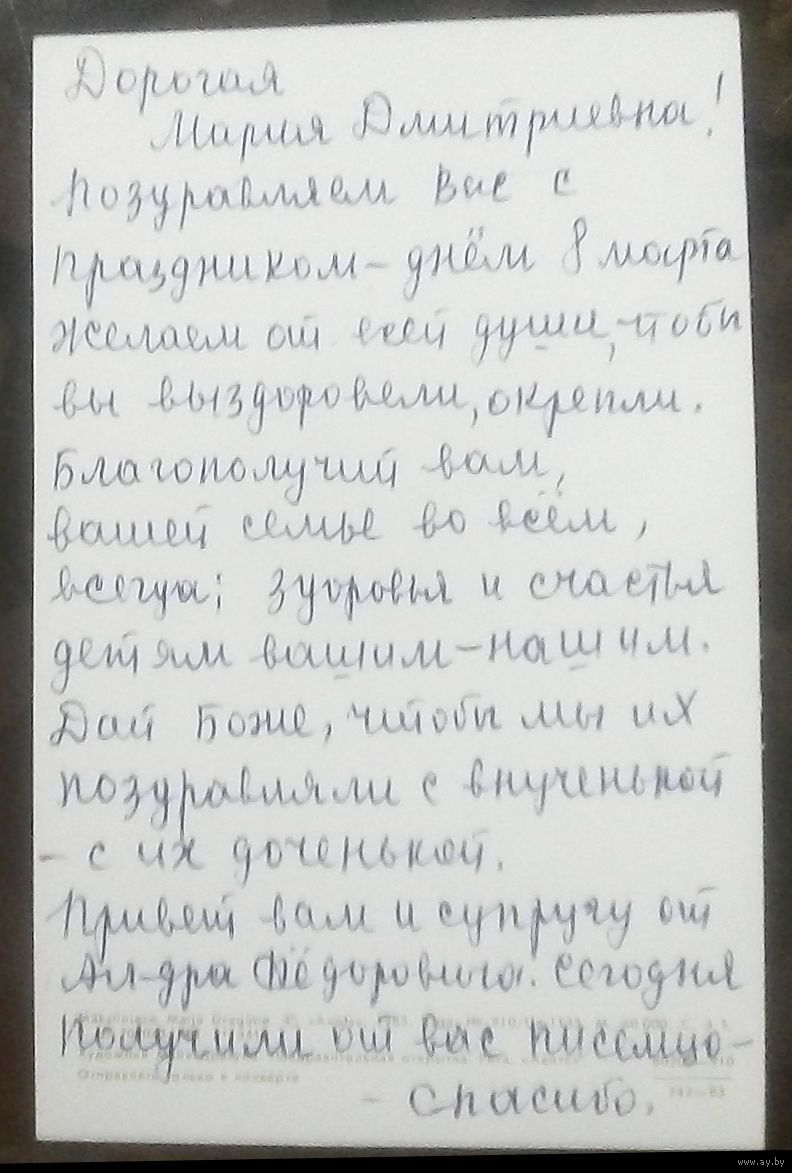 Дорогая
Мария Дмитриевна!
Поздравляем Вас с
праздником – днём 8 марта
Желаем от всей души, чтобы
вы выздоровели, окрепли.
Благополучий вам,
вашей семье во всём,
всегда; здоровья и счастья
детям вашим – нашим.
Дай Боже, чтобы мы их
поздравляли с внученькой
– с их доченькой.
Привет вам и супругу от
Ал-дра Фёдоровича. Сегодня
Получили от вас письмцо –
– спасибо.
Отправлять только в конверте
747—83
www.ay.by